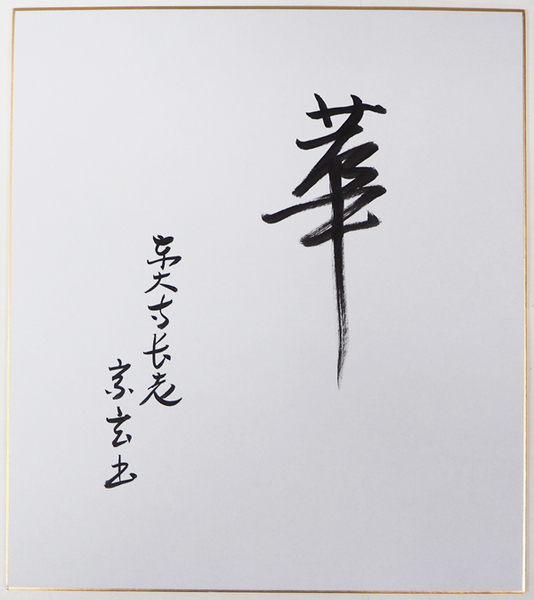 華
東大寺長老
宗玄書